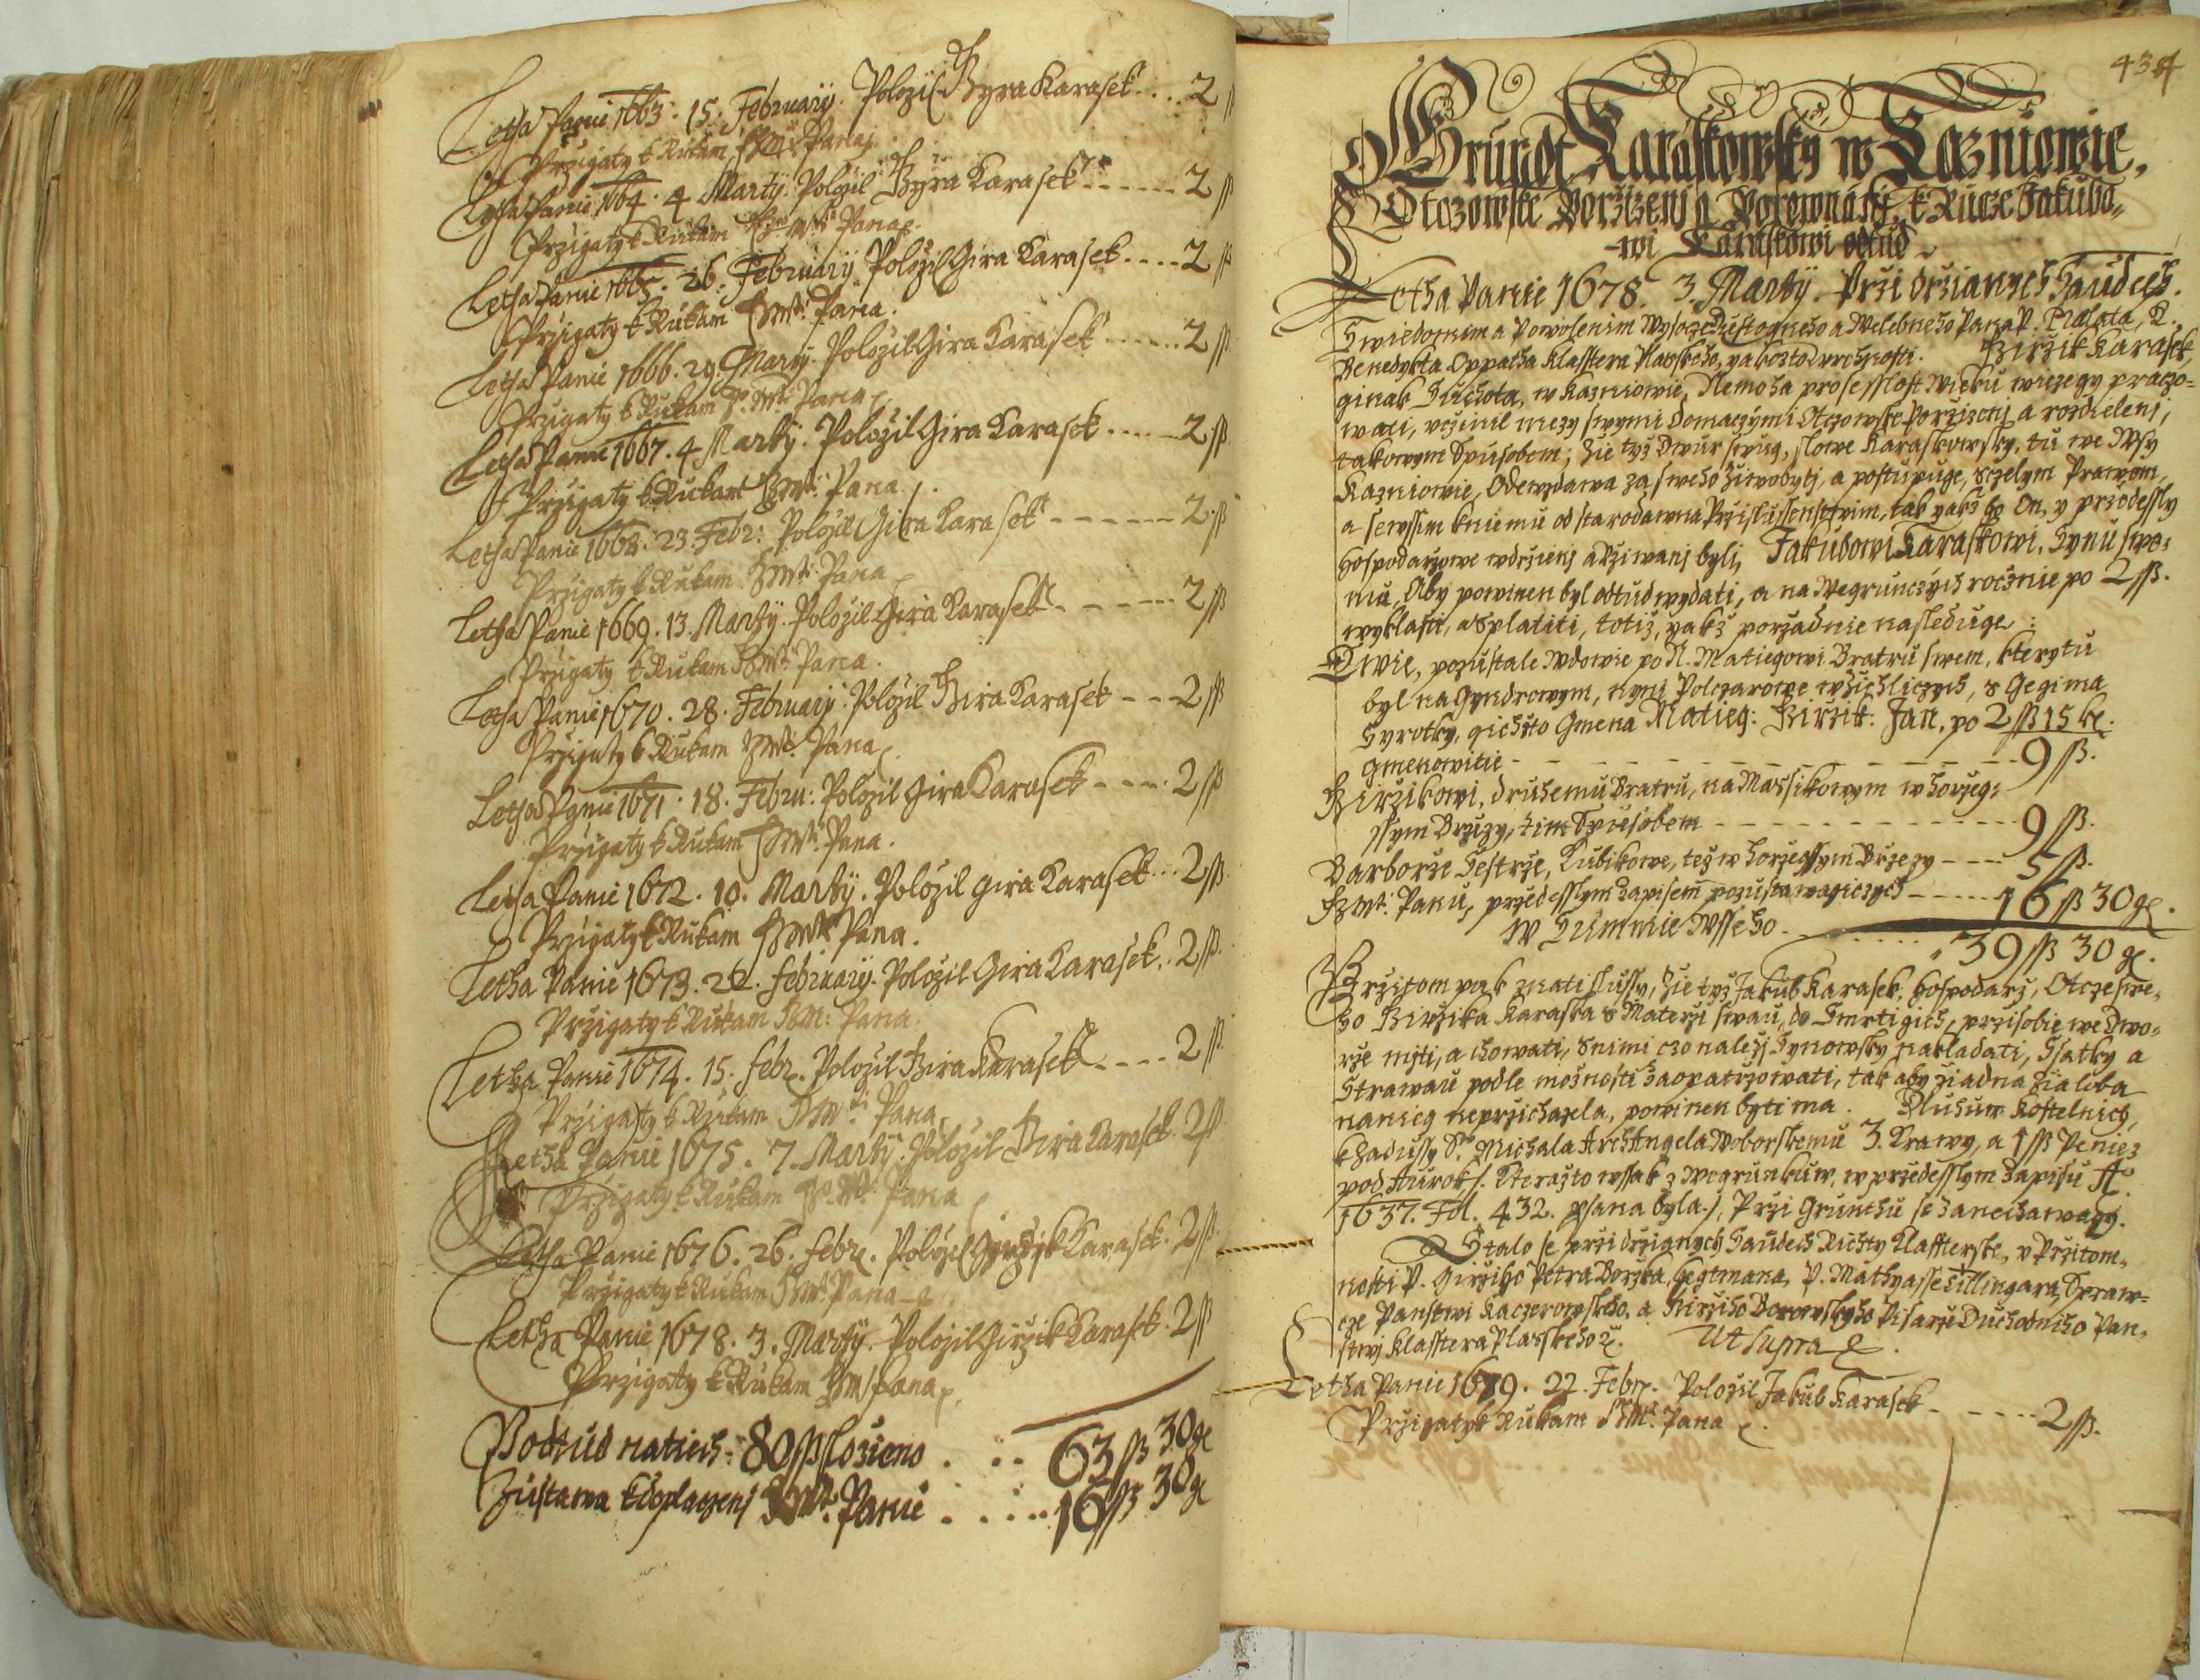 Letha Panie 1663. 15. February. Položil Gyra Karasek ... 2 ß
Przigaty k Rukam JMti Pana.
Letha Panie 1664. 4 Marty. Položil Gyra Karasek ...... 2 ß
Przigaty k Rukam JMti Pana.
Letha Panie 1665. 26. February Položil Gira Karasek .... 2 ß
Przigaty k Rukam JMti Pana.
Letha Panie 1666. 29. Marty. Položil Gira Karasek ...... 2 ß
Przigaty k Rukam JMti Pana.
Letha Panie 1667. 4 Marty. Položil Gira Karasek ...... 2 ß
Przigaty k Rukam JMti Pana.
Letha Panie 1668. 23. Febr: Položil Gira Karasek ------ 2 ß
Przigaty k Rukam JMti Pana
Letha Panie 1669. 13. Marty. Položil Gira Karasek ------ 2 ß
Przigaty k Rukam JMti Pana.
Letha Panie 1670. 28. February. Položil Gira Karasek --- 2 ß
Przigaty k Rukam JMti Pana
Letha Panie 1671. 18. Febru: Položil Gira Karasek ---- 2 ß
Przigaty k Rukam JMti Pana.
Letha Panie 1672. 10. Marty. Položil Gira Karasek ... 2 ß
Przigaty k Rukam JMti Pana.
Letha Panie 1673. February. Položil Gira Karasek .. 2 ß
Przigaty k Rukam JM: Pana.
Letha Panie 1674. 15. febr. Položil Gira Karasek ---- 2 ß
Przigaty k Rukam JMti Pana
Letha Panie 1675. 7. Marty. Položil Gira Karasek. 2 ß
Przigaty k Rukam JMti Pana
Letha Panie 1676. 26. febr. Položil Girzik Karasek. 2 ß.
Przigaty k Rukam JMti Pana
Letha Panie 1678. 3. Marty. Položil Girzik Karasek. 2 ß
Przigaty k Rukam JM Pana
Podtud natiech 80 ß složieno . .. 63 ß 30 gr
Zustawa k doplaczenj JMti Panu ..... 16 ß 30 gr
434
Grundt Karaskowsky w Kazniowie,
Otczowske Porzizenj a Porownánj, k Rucze Jakubo-
wi Karaskowi odtud
Letha Panie 1678. 3. Marty. Przi držianych Saudech.
S wiedomim a Powolenim Wysocze Dustogneho a Welebneho Pana P. Prælata, R.
Benedykta Oppatha Klasstera Plasskeho, yakožto wrchnosti. Girzik Karasek,
ginak Suchota, w Kazniowie, Nemoha pro sesslost Wieku wiczegy praczo-
wati, vczinil mezy swymi Domaczymi Otczowske Porzizenj a rozdielenj,
takowym Spusobem; Žie tyž Dwur swug, slowe Karaskowsky, tu we Wsy
Kazniowie, Odewzdawa za sweho žiwobytj, a postupuge, s czelym Prawem,
a sewssim k niemu od starodawna Przislussenstwim, tak yakž ho On, y przedessly
Hospodarzowe w drženj a užiwanj byli, Jakubowi Karaskowi, Synu swe-
mu, Aby powinen byl odtud wydati, a na Wegrunczych rocžnie po 2 ß.
wyklasti, a splatiti, totiž, yakž porzadnie nasleduge:
Dwie, pozustale Wdowie po N. Matiegowi Bratru swem, kterytu
byl na Gyndrowym, nynj Polczarowe w Žichliczych, s Gegima
Syrotky, gichžto Gmena Matieg: Girzik: Jan, po 2 ß 15 kr.
Gmenowitie - - - - - - - - - - - 9 ß.
Girzikowi, druhemu Bratru, na Massikowym w horzeg-
ssym Brzizy, tim Spusobem - - - - - - - - - 9 ß.
Barborze Sestrze, Kubikowe, též w horzegssym Brzezy ---- 5 ß.
JMti: Panu, przedesslym Zapisem pozustawagiczych ------ 16 ß 30 gr.
W Summie Wsseho . . . . . . . 39 ß 30 gr.
Przitom pak znati slussy, Žie tyž Jakub Karasek, hospodarž, Otcze swe-
ho Girzika Karaska s Materzi swau, do Smrti gich, przi sobie we Dwo-
rze mjti, a chowati, s nimi czo naležj Synowsky nakladati, Ssatky a
Strawau podle možnosti zaopatrzowati, tak aby žiadna žialoba
na nieg neprzichazela, powinen byti ma. Dluhuw Kostelnich,
k Zadussy S. Michala ArchAngela Woborskemu 3. Krawy, a 1 ß Peniez
pod Aurok /: kterážto wssak z Wegrunkuw, w przedesslym Zapisu Ao
1637. Fol. 432. psana byla :/, Przi Grunthu se zanechawagy.
Stalo se przi držianych Saudech Richty Klassterske, v Przitom-
nosti P. Girziho Petra Borzka, Hegtmana, P. Mathyasse Sillingara, Spraw-
cze Panstwi Kaczerowskeho, a Girziho Borowskyho Pisarze Duchodniho Pan-
stwj Klasstera Plasskeho. Ut supra
Letha Panie 1679. 22. Febr. Položil Jakub Karasek - - - ... 2 ß.
Przigaty k Rukam JMti Pana